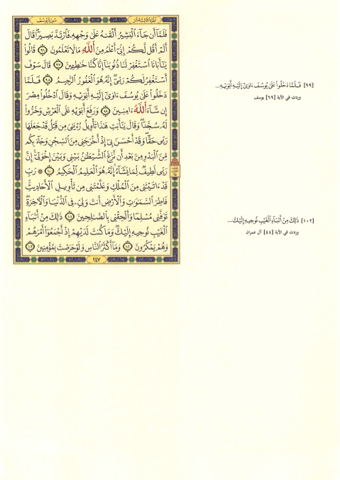 سورة يوسف
فَلَمَّا أَن جَاءَ الْبَشِيرُ أَلْقَاهُ عَلَى وَجْهِهِ فَارْتَدَّ بَصِيرًا قَالَ
أَلَمْ أَقُل لَّكُمْ إِنِّي أَعْلَمُ مِنَ اللَّهِ مَا لَا تَعْلَمُونَ ۝ قَالُوا
يَا أَبَانَا اسْتَغْفِرْ لَنَا ذُنُوبَنَا إِنَّا كُنَّا خَاطِئِينَ ۝ قَالَ سَوْفَ
أَسْتَغْفِرُ لَكُمْ رَبِّي إِنَّهُ هُوَ الْغَفُورُ الرَّحِيمُ ۝ فَلَمَّا
دَخَلُوا عَلَى يُوسُفَ ءَاوَى إِلَيْهِ أَبَوَيْهِ وَقَالَ ادْخُلُوا مِصْرَ
إِن شَاءَ اللَّهُ ءَامِنِينَ ۝ وَرَفَعَ أَبَوَيْهِ عَلَى الْعَرْشِ وَخَرُّوا
لَهُ سُجَّدًا وَقَالَ يَا أَبَتِ هَذَا تَأْوِيلُ رُءْيَايَ مِن قَبْلُ قَدْ جَعَلَهَا
رَبِّي حَقًّا وَقَدْ أَحْسَنَ بِي إِذْ أَخْرَجَنِي مِنَ السِّجْنِ وَجَاءَ بِكُم
مِّنَ الْبَدْوِ مِن بَعْدِ أَن نَّزَغَ الشَّيْطَانُ بَيْنِي وَبَيْنَ إِخْوَتِي إِنَّ
رَبِّي لَطِيفٌ لِّمَا يَشَاءُ إِنَّهُ هُوَ الْعَلِيمُ الْحَكِيمُ ۝ رَبِّ
قَدْ ءَاتَيْتَنِي مِنَ الْمُلْكِ وَعَلَّمْتَنِي مِن تَأْوِيلِ الْأَحَادِيثِ
فَاطِرَ السَّمَاوَاتِ وَالْأَرْضِ أَنتَ وَلِيِّي فِي الدُّنْيَا وَالْآخِرَةِ
تَوَفَّنِي مُسْلِمًا وَأَلْحِقْنِي بِالصَّالِحِينَ ۝ ذَلِكَ مِنْ أَنبَاءِ
الْغَيْبِ نُوحِيهِ إِلَيْكَ وَمَا كُنتَ لَدَيْهِمْ إِذْ أَجْمَعُوا أَمْرَهُمْ
وَهُمْ يَمْكُرُونَ ۝ وَمَا أَكْثَرُ النَّاسِ وَلَوْ حَرَصْتَ بِمُؤْمِنِينَ ۝
٢٤٧
[٩٩] فَلَمَّا دَخَلُوا عَلَى يُوسُفَ ءَاوَى إِلَيْهِ أَبَوَيْهِ...
وردت في الآية [٦٩] يوسف
[١٠٢] ذَلِكَ مِنْ أَنبَاءِ الْغَيْبِ نُوحِيهِ إِلَيْكَ...
وردت في الآية [٤٤] آل عمران